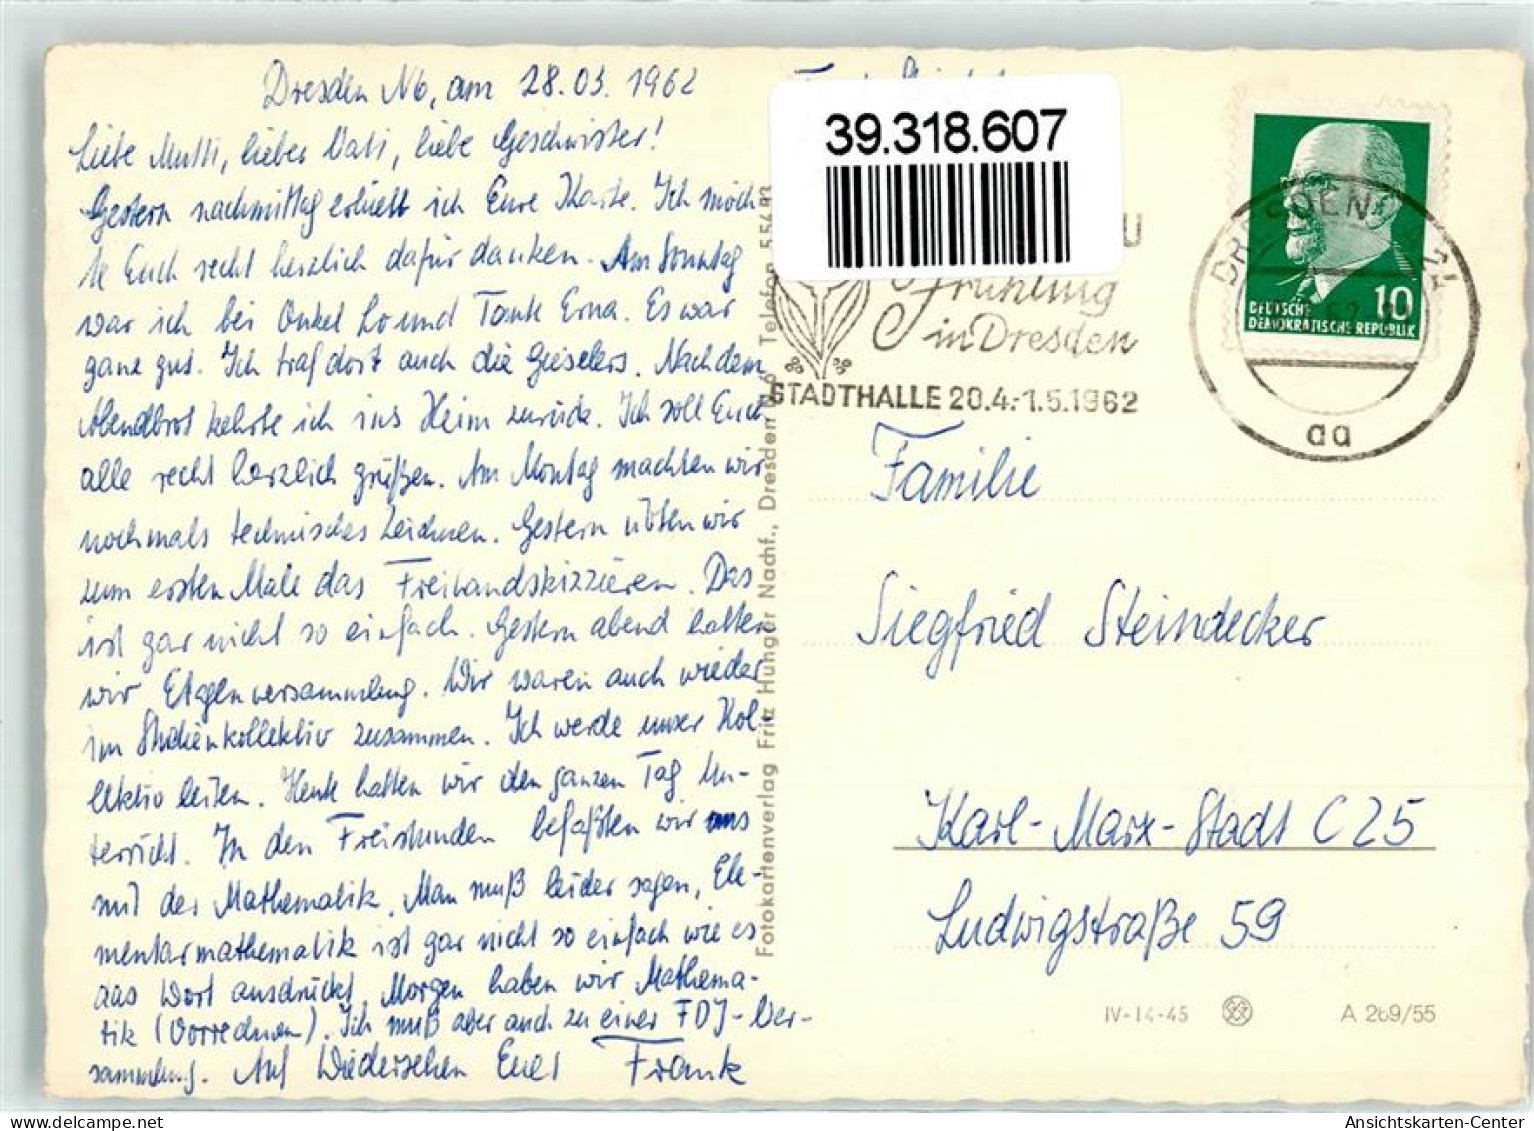 Dresden N6, am 28.03.1962
Liebe Mutti, lieber Vati, liebe Geschwister!
Gestern nachmittag erhielt ich Eure Karte. Ich möch-
te Euch recht herzlich dafür danken. Am Sonntag
war ich bei Onkel Lo und Tante Erna. Es war
ganz gut. Ich traf dort auch die Gieselers. Nachdem
Abendbrot kehrte ich ins Heim zurück. Ich soll Euch
alle recht herzlich grüßen. Am Montag machten wir
nochmals technisches Zeichnen. Gestern übten wir
zum ersten Male das Freihandskizzieren. Das
ist gar nicht so einfach. Gestern abend hatten
wir Etagenversammlung. Wir waren auch wieder
im Studienkollektiv zusammen. Ich werde unser Kol-
lektiv leiten. Heute hatten wir den ganzen Tag Un-
terricht. In den Freistunden befaßten wir uns
mit der Mathematik. Man muß leider sagen, Ele-
mentarmathematik ist gar nicht so einfach wie es
das Wort ausdrückt. Morgen haben wir Mathema-
tik (Vorrechnen). Ich muß aber auch zu einer FDJ-Ver-
sammlung. Auf Wiedersehen Euer Frank
Fotokartenverlag Fritz Hunger Nachf., Dresden N 6 Telefon 55493
39.318.607
U
Frühling
in Dresden
STADTHALLE 20.4.-1.5.1962
DRESDEN
62
aa
DEUTSCHE
DEMOKRATISCHE REPUBLIK
10
Familie
Siegfried Steindecker
Karl-Marx-Stadt C25
Ludwigstraße 59
IV-14-45
A 269/55
Ansichtskarten-Center